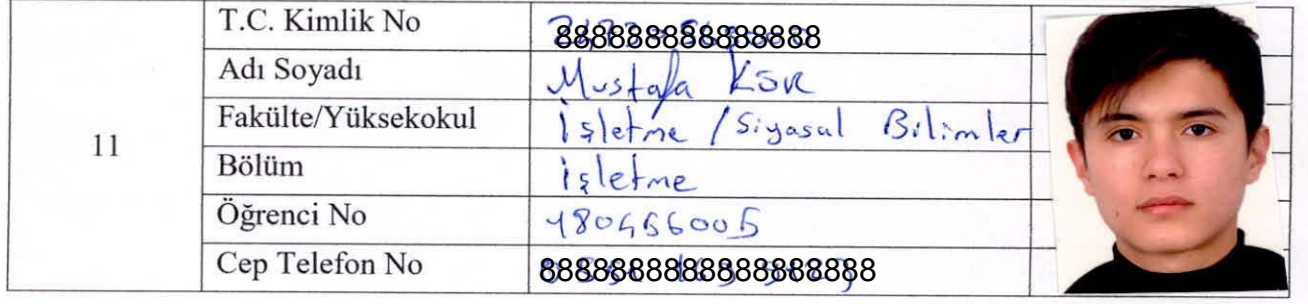 T.C. Kimlik No 88888888888888
Adı Soyadı Mustafa Kör
Fakülte/Yüksekokul İşletme / Siyasal Bilimler
11
Bölüm İşletme
Öğrenci No 180466005
Cep Telefon No